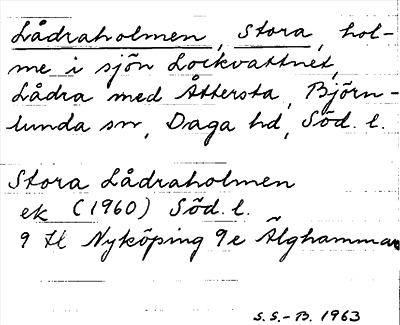 Lådraholmen, Stora, hol-
me i sjön Lockvattnet,
Lådra med Åttersta, Björn-
lunda sn, Daga hd, Söd. l.
Stora Lådraholmen
ek (1960) Söd. l.
9 H Nyköping 9e Älghammar
S.S.-B. 1963